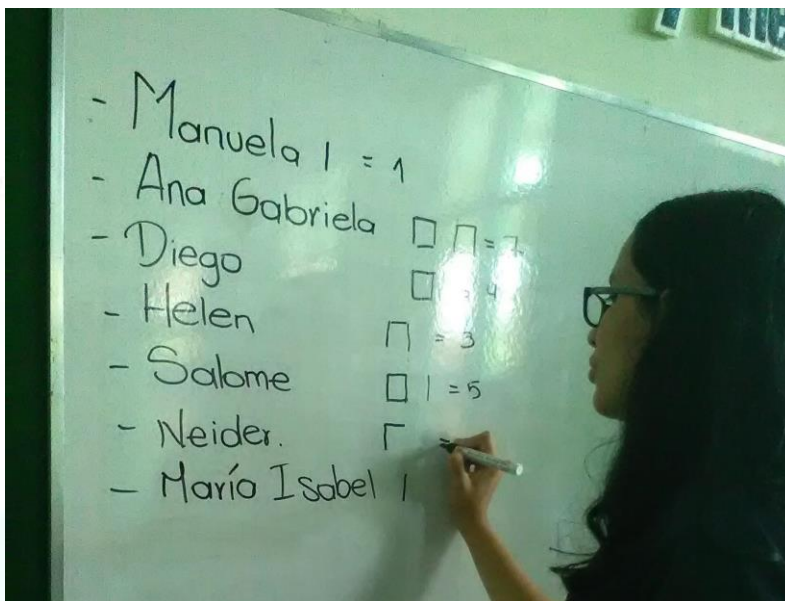 - Manuela | = 1
- Ana Gabriela □ ⊓ = 7
- Diego □ = 4
- Helen ⊓ = 3
- Salome □ | = 5
- Neider. Γ =
- María Isabel |